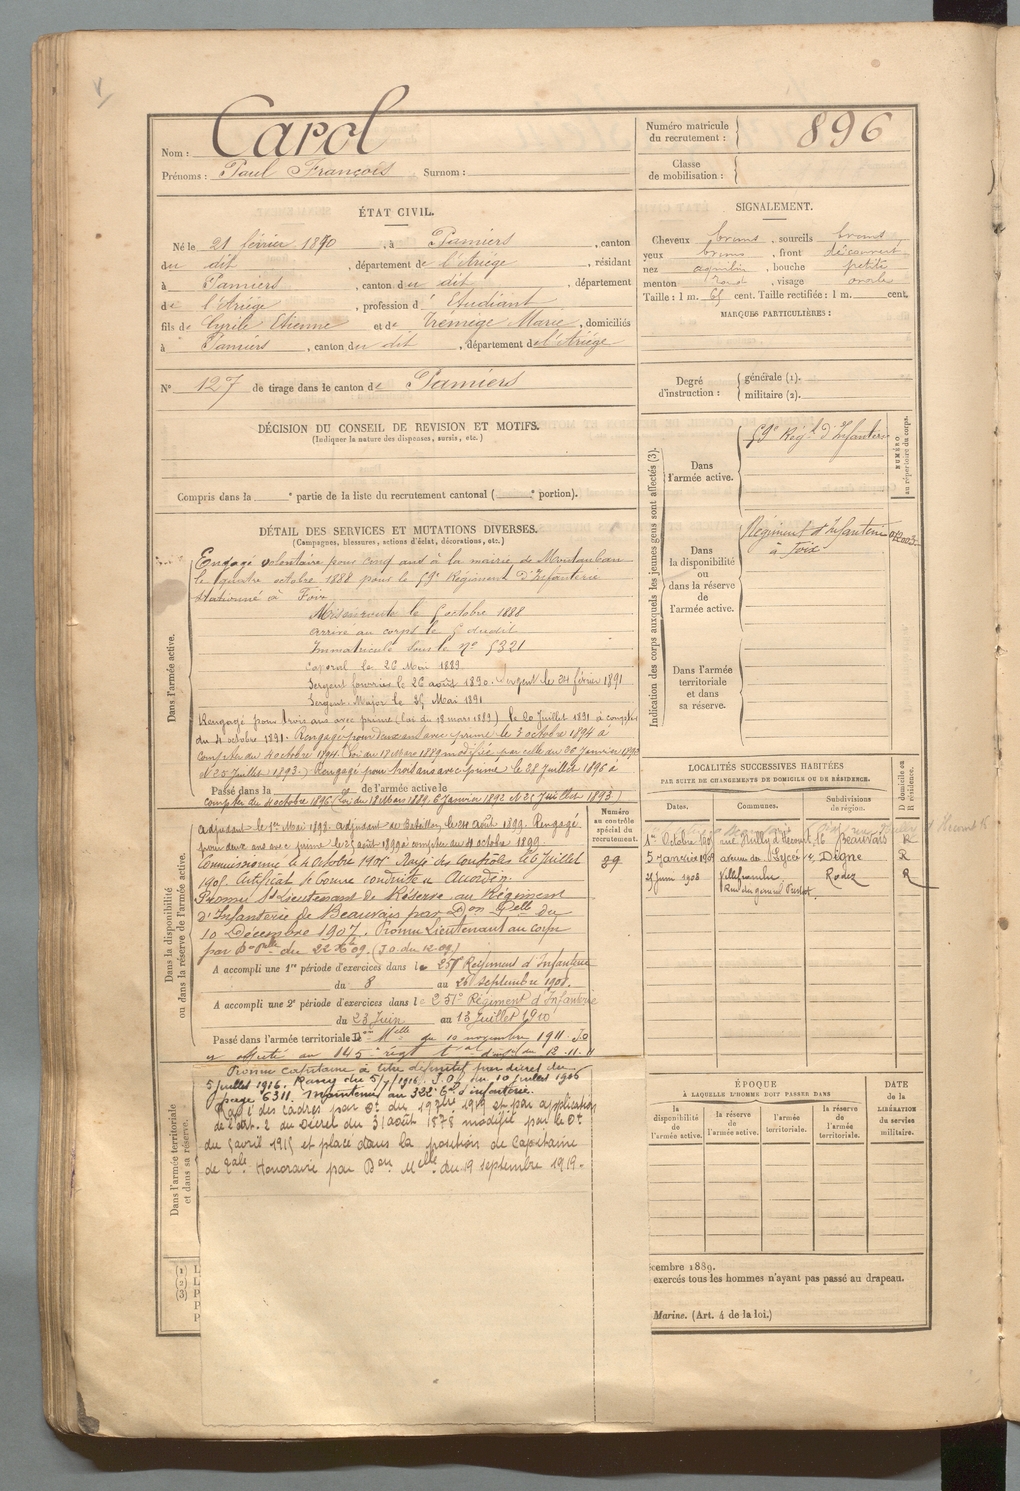 Nom : Carol
Prénoms : Paul François Surnom :
Numéro matricule du recrutement : 896
Classe de mobilisation :
ÉTAT CIVIL.
Né le 21 février 1870, à Pamiers, canton
du dit, département de l'Ariège, résidant
à Pamiers, canton du dit, département
de l'Ariège, profession d'Etudiant
fils de Cyrile Etienne et de Trémège Marie, domiciliés
à Pamiers, canton du dit, département de l'Ariège
N° 127 de tirage dans le canton de Pamiers
SIGNALEMENT.
Cheveux bruns, sourcils bruns
yeux bruns, front découvert
nez aquilin, bouche petite
menton rond, visage ovale
Taille : 1 m. 65 cent. Taille rectifiée : 1 m. cent.
MARQUES PARTICULIÈRES :
Degré d'instruction : générale (1).
militaire (2).
DÉCISION DU CONSEIL DE REVISION ET MOTIFS.
(Indiquer la nature des dispenses, sursis, etc.)
Compris dans la ° partie de la liste du recrutement cantonal ( ° portion).
DÉTAIL DES SERVICES ET MUTATIONS DIVERSES.
(Campagnes, blessures, actions d'éclat, décorations, etc.)
Dans l'armée active.
Engagé volontaire pour cinq ans à la mairie de Montauban
le quatre octobre 1888 pour le 59e Régiment d'Infanterie
stationné à Foix
Mis en route le 5 octobre 1888
arrivé au corps le 5 dudit
Immatriculé sous le n° 5321
caporal le 26 Mai 1889
Sergent fourrier le 26 août 1890. Sergent le 24 février 1891
Sergent-Major le Mai 1891
Rengagé pour trois ans avec prime (loi du 18 mars 1889) le 20 Juillet 1891 à compter
du 4 octobre 1891. Rengagé pour deux ans avec prime le 3 octobre 1894 à
compter du 4 octobre 1894. Loi du 18 Mars 1889 modifiée par celle du Janvier 1892
N 25 Juillet 1893.) Rengagé pour trois ans avec prime le 28 Juillet 1896 à
Passé dans la de l'armée active le
compter du 4 octobre 1896 (Loi du 18 Mars 1889, 6 Janvier 1892 N 25 Juillet 1893)
Dans la disponibilité ou dans la réserve de l'armée active.
Numéro au contrôle spécial du recrutement.
89
adjudant le 1er Mai 1898. adjudant de Bataillon le 24 août 1899. Rengagé
pour deux ans avec prime le 25 août 1899 à compter du 4 octobre 1899
Commissionné le 4 Octobre 1901 Rayé des contrôles le 6 Juillet
Certificat de bonne conduite Accordé.
Promu Ss Lieutenant de Réserve au Régiment
d'Infanterie de Beauvais par Don Pelle du
10 Décembre 1907. Promu Lieutenant au corps
par Don Pelle du 22 Xbre 09. (JO du 12-09)
A accompli une 1re période d'exercices dans le 251e Régiment d'Infanterie
du 8 au Septembre 1908.
A accompli une 2e période d'exercices dans le 251e Régiment d'Infanterie
du 23 Juin au 13 Juillet 1910
Passé dans l'armée territoriale Don Melle du 10 novembre 1911 JO
affecté au 145e régt du 12-11-11
Dans l'armée territoriale et dans sa réserve.
Promu Capitaine à titre définitif par décret du
5 Juillet 1916. Rang du 5/7/1916. J.O. du 10 juillet 1916
page 6311. Maintenu au 322e d'infanterie.
Rayé des cadres par Dt du 19 7bre 1919 et par application
de l'art. 2 du Décret du 31 août 1878 modifié par le Dt
du 5 avril 1915 et placé dans la position de Capitaine
de Honoraire par Don Melle du 19 septembre 1919.
Indication des corps auxquels les jeunes gens sont affectés (3).
NUMÉRO au répertoire du corps.
Dans l'armée active.
59e Régt d'Infanterie
Dans la disponibilité ou dans la réserve de l'armée active.
Régiment d'Infanterie
à Foix
Dans l'armée territoriale et dans sa réserve.
LOCALITÉS SUCCESSIVES HABITÉES
PAR SUITE DE CHANGEMENTS DE DOMICILE OU DE RÉSIDENCE.
Dates. Communes. Subdivisions de région. D domicile ou R résidence.
1er Octobre rue 16 Beauvais R
5 Janvier avenue du Lycée Digne R
21 Juin 1908 Villefranche Rodez R
Rue du général Prestat
ÉPOQUE
À LAQUELLE L'HOMME DOIT PASSER DANS
la disponibilité de l'armée active.
la réserve de l'armée active.
l'armée territoriale.
la réserve de l'armée territoriale.
DATE de la LIBÉRATION du service militaire.
(1) L
(2) L
(3) P
P
P
cembre 1889.
exercés tous les hommes n'ayant pas passé au drapeau.
Marine. (Art. 4 de la loi.)